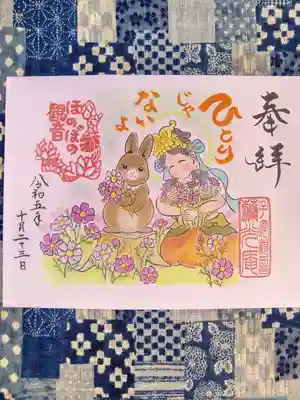 奉拝
ひとり
じゃ
ない
よ
ほのぼの
観音
令和五年
十月二十三日